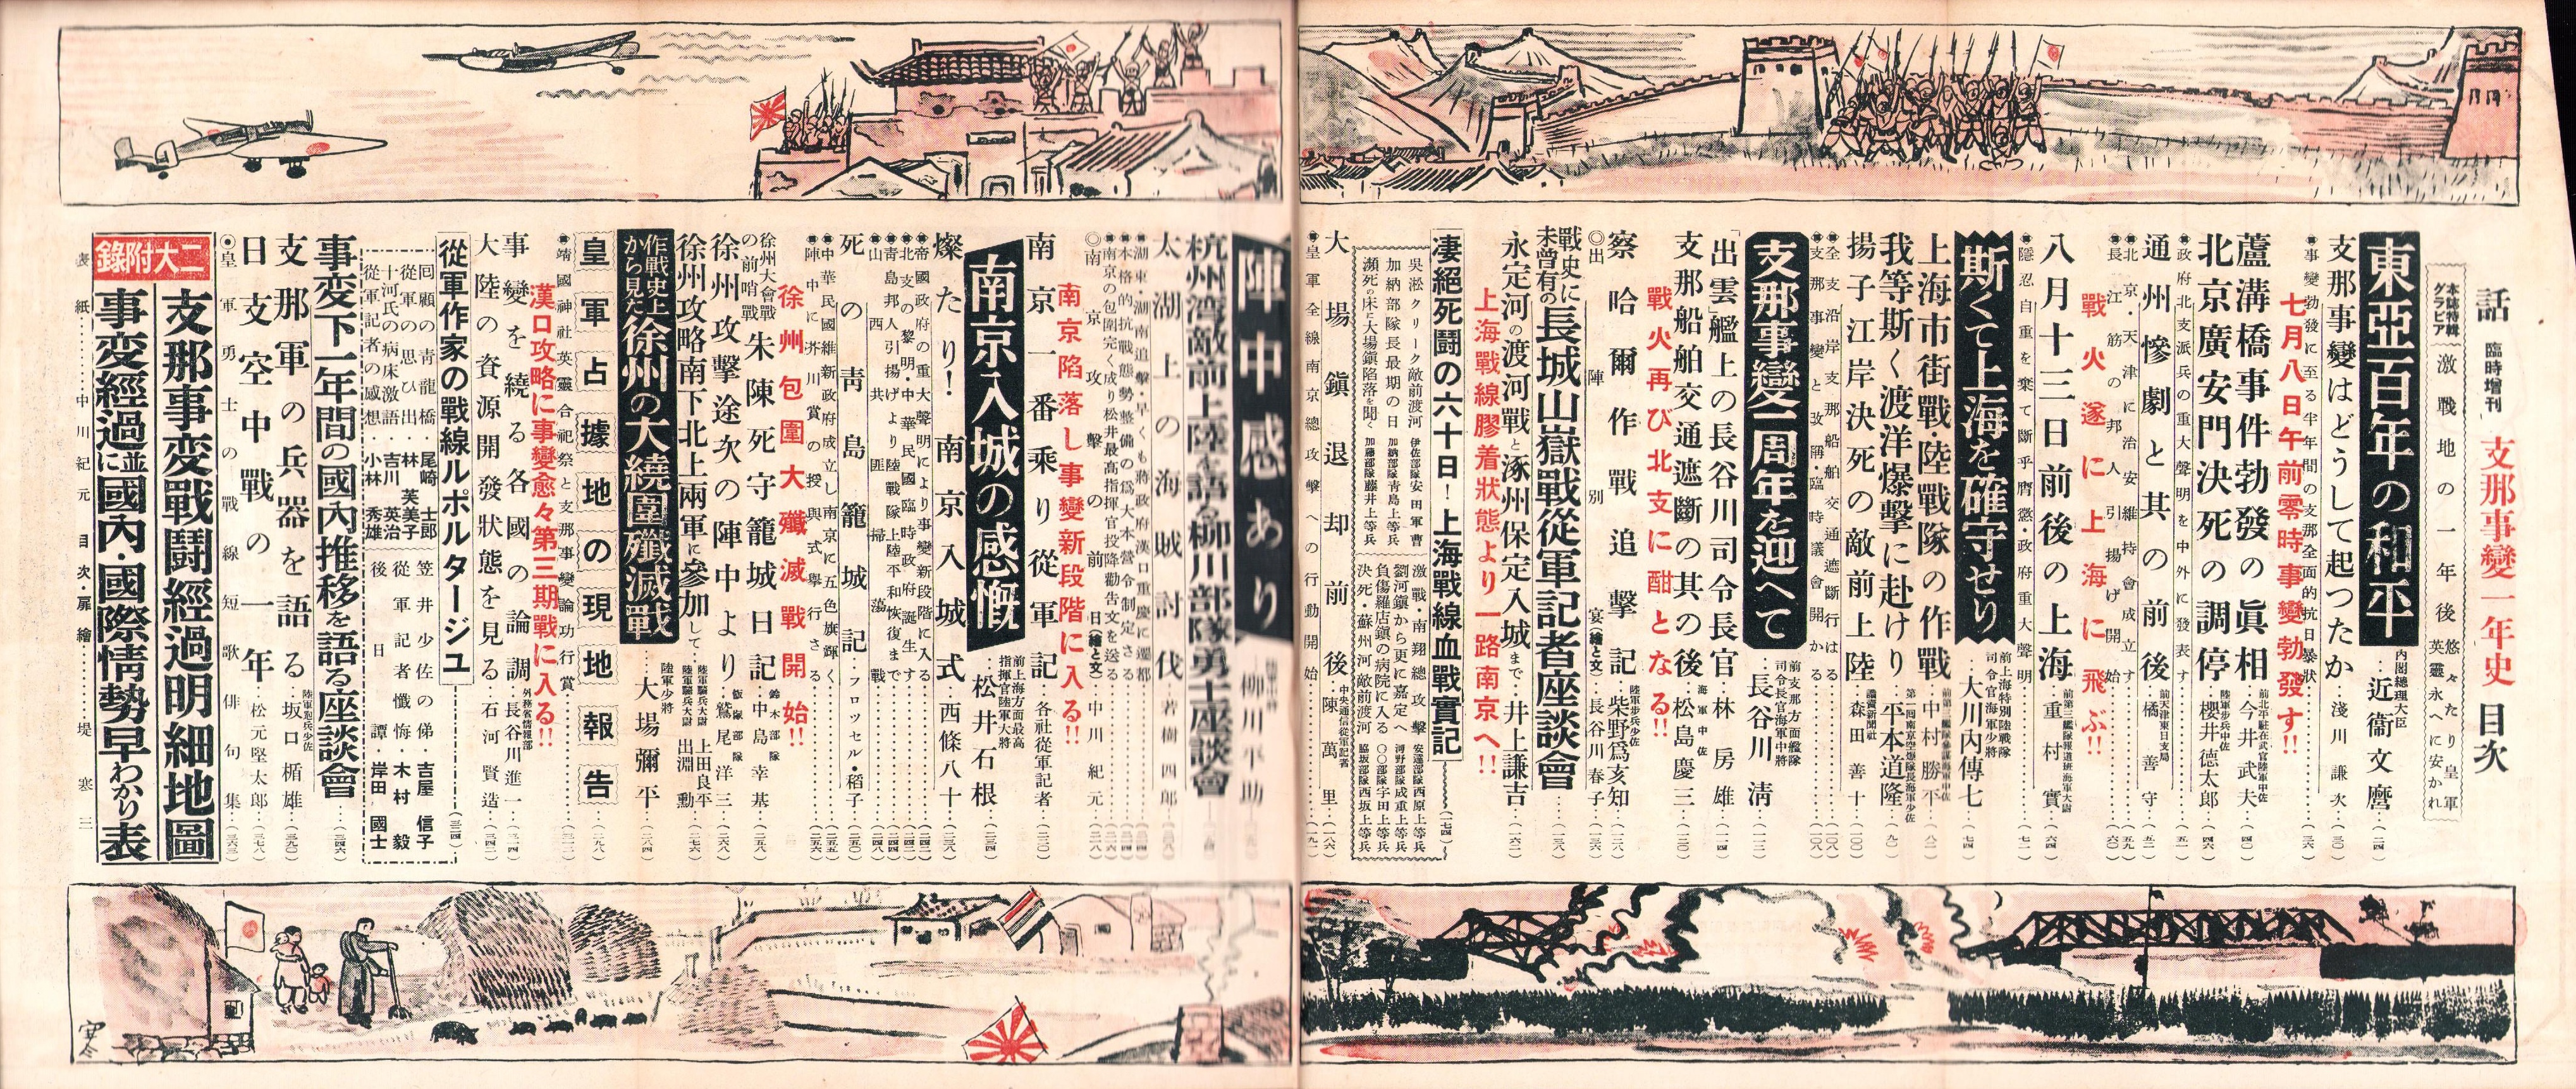 話 臨時増刊 支那事變一年史 目次
本誌特輯グラビア 激戰地の一年後 悠々たり皇軍 英靈永へに安かれ
東亞百年の和平 内閣總理大臣 近衞文麿
支那事變はどうして起つたか 淺川謙次
事變勃發に至る半年間の支那全面的抗日暴狀
七月八日午前零時事變勃發す!!
蘆溝橋事件勃發の眞相 今井武夫
北京廣安門決死の調停 陸軍步兵中佐 櫻井德太郎
政府北支派兵の重大聲明を中外に發表す
通州慘劇と其の前後 橘善守
北京・天津に治安維持會成立す
長江筋の邦人引揚げ開始
戰火遂に上海に飛ぶ!!
八月十三日前後の上海 重村實
隱忍自重を棄て斷乎膺懲・政府重大聲明
斯くて上海を確守せり 前上海特別陸戰隊司令官海軍少將 大川内傳七
上海市街戰・陸戰隊の作戰 中村勝平
我等斯く渡洋爆擊に赴けり 平本道隆
揚子江岸決死の敵前上陸 讀賣新聞社 森田善十
全支沿岸支那船舶交通遮斷行はる
支那事變と改稱・臨時議會開かる
支那事變一周年を迎へて 前支那方面艦隊司令長官海軍中將 長谷川清
「出雲」艦上の長谷川司令長官 林房雄
支那船舶交通遮斷の其の後 海軍中佐 松島慶三
戰火再び北支に酣となる!!
察哈爾作戰追擊記 陸軍步兵少佐 柴野爲亥知
◎出陣別宴(繪と文) 長谷川春子
戰史に未曾有の長城山嶽戰從軍記者座談會
永定河の渡河戰と涿州保定入城まで 井上謙吉
上海戰線膠着狀態より一路南京へ!!
凄絕死鬪の六十日!上海戰線血戰實記
吳淞クリーク敵前渡河 伊佐部隊安田軍曹
加納部隊長最期の日 加納部隊靑島上等兵
瀕死の床に大場鎭陷落を聞く 加藤部隊藤井上等兵
激戰・南翔總攻擊 安達部隊西原上等兵
劉河鎭から更に嘉定へ 河野部隊成重上等兵
負傷羅店鎭の病院に入る 〇〇部隊宇田上等兵
決死・蘇州河敵前渡河 脇坂部隊西坂上等兵
大場鎭退却前後 中央通信從軍記者 陳萬里
皇軍全線南京總攻擊への行動開始
陣中感あり 柳川平助
杭州湾敵前上陸を語る柳川部隊勇士座談會
太湖上の海賊討伐 若樹四郎
湖東・湖南追擊・早くも蔣政府漢口重慶に遷都
本格的抗戰態勢整備の爲大本營令制定さる
南京の包圍完く成り松井最高指揮官投降勸告文を送る
◎南京攻擊の前日(繪と文) 中川紀元
南京陷落し事變新段階に入る!!
南京一番乘り從軍記 各社從軍記者
南京入城の感慨 前上海方面最高指揮官陸軍大將 松井石根
燦たり!南京入城式 西條八十
帝國政府の重大聲明により事變新段階に入る
北支の黎明・中華民國臨時政府誕生す
靑島邦人引揚げより陸戰隊上陸平和恢復まで
山西共匪掃蕩戰
死の靑島籠城記 フロッセル・稻子
中華民國維新政府成立し南京に五色旗輝く
陣中に芥川賞の授與式擧行さる
徐州包圍大殲滅戰開始!!
徐州大會戰の前哨戰 朱陳死守籠城日記 鈴木部隊 中島幸基
徐州攻擊途次の陣中より 飯塚部隊 鷲尾洋三
徐州攻略南下北上兩軍に參加して 陸軍騎兵大尉 上田良平 陸軍騎兵大尉 出淵勳
作戰史上から見た徐州の大繞圍殲滅戰 陸軍少將 大場彌平
皇軍占據地の現地報告
靖國神社英靈合祀祭と支那事變論功行賞
漢口攻略に事變愈々第三期戰に入る!!
事變を繞る各國の論調 外務省情報部 長谷川進一
大陸の資源開發狀態を見る 石河賢造
從軍作家の戰線ルポルタージュ
回顧の靑龍橋 尾崎士郎
從軍の思ひ出 林芙美子
十河氏の病床激語 吉川英治
從軍記者の感想 小林秀雄
笠井少佐の俤 吉屋信子
從軍記者懺悔 木村毅
後日譚 岸田國士
事変下一年間の國內推移を語る座談會
支那軍の兵器を語る 陸軍砲兵少佐 坂口楯雄
日支空中戰の一年 松元堅太郎
◎皇軍勇士の戰線短歌俳句集
二大附錄
支那事変戰鬪經過明細地圖
事変經過に並國內・國際情勢早わかり表
表紙 中川紀元 目次・扉繪 堤寒三